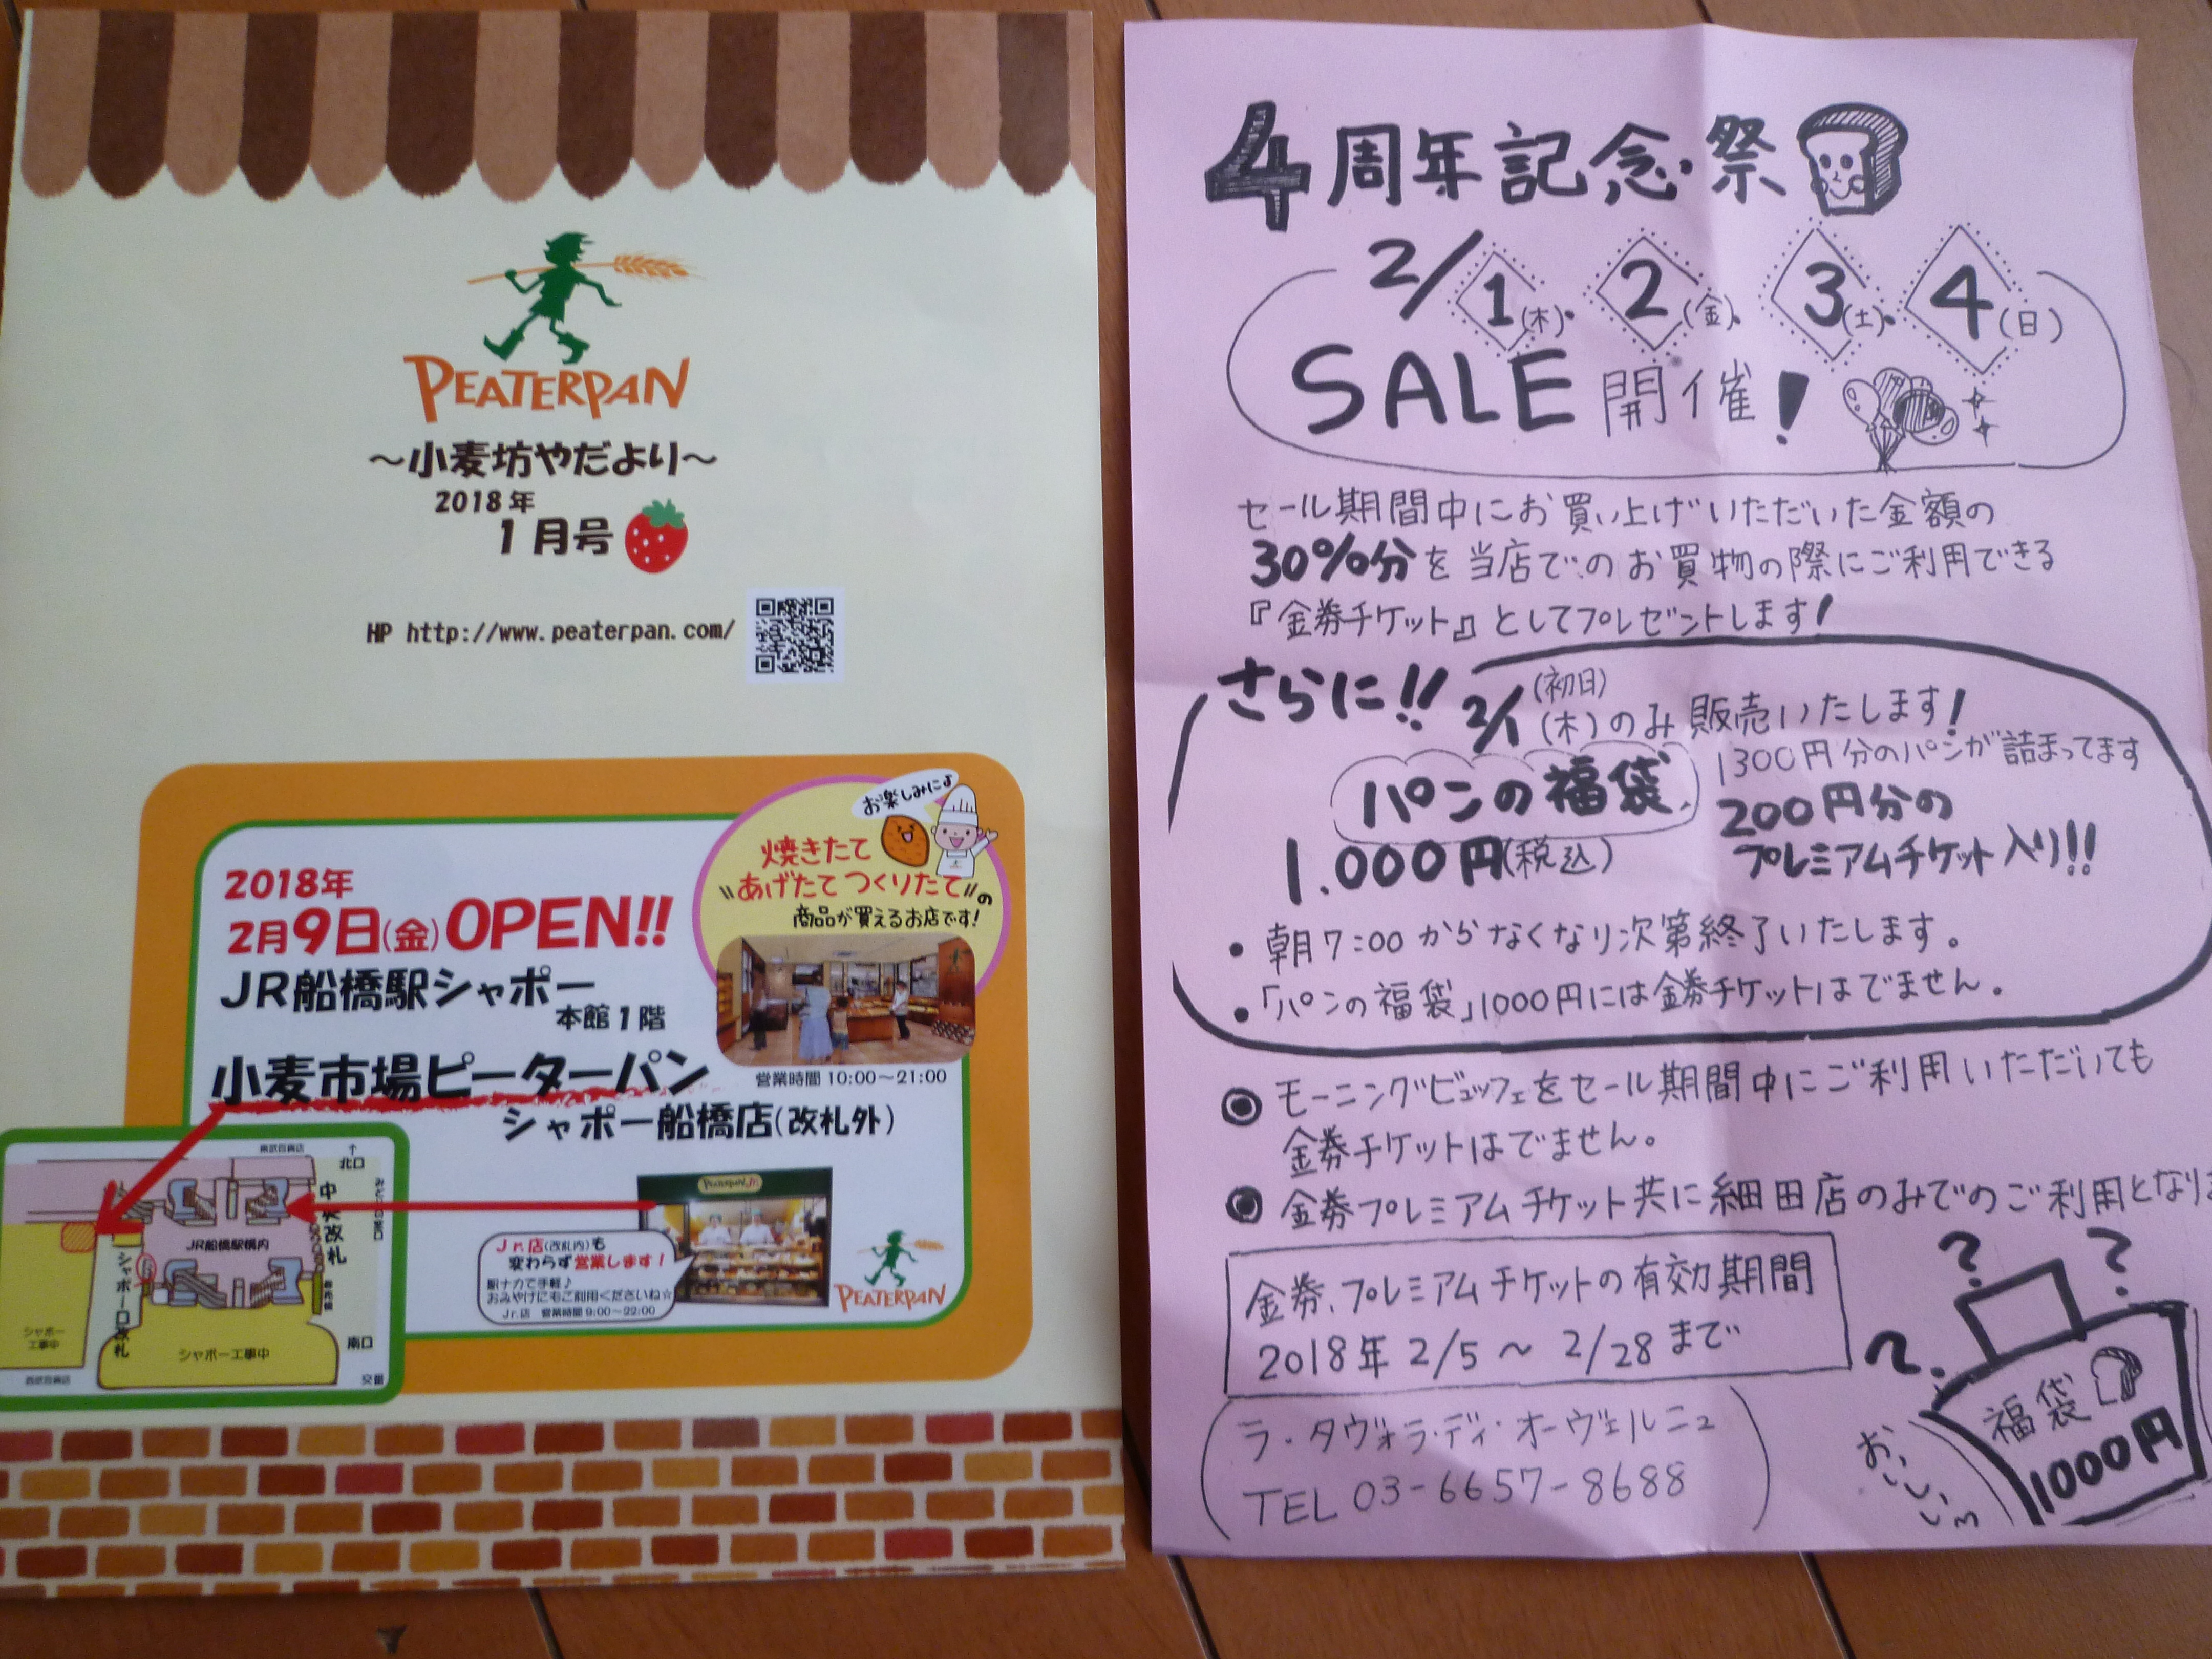 PEATERPAN
～小麦坊やだより～
2018年
1月号
HP http://www.peaterpan.com/
お楽しみに♪
焼きたて
"あげたて つくりたて"の
商品が買えるお店です!
2018年
2月9日(金)OPEN!!
JR船橋駅シャポー
本館1階
小麦市場ピーターパン
営業時間 10:00～21:00
シャポー船橋店(改札外)
東武百貨店
↑
北口
中央改札
JR船橋駅構内
シャポー口改札
シャポー
工事中
シャポー工事中
南口
西武百貨店
交番
PEATERPAN Jr.
Jr.店(改札内)も
変わらず営業します!
駅ナカで手軽♪
おみやげにもご利用くださいね☆
Jr.店 営業時間 9:00～22:00
PEATERPAN
4周年記念祭
2/1(木)・2(金)・3(土)・4(日)
SALE開催!
セール期間中にお買い上げいただいた金額の
30%分を当店でのお買物の際にご利用できる
『金券チケット』としてプレゼントします!
さらに!! 2/1(初日)(木)のみ販売いたします!
パンの福袋
1.000円(税込)
1300円分のパンが詰まってます
200円分の
プレミアムチケット入り!!
・朝7:00からなくなり次第終了いたします。
・「パンの福袋」1000円には金券チケットはでません。
◎モーニングビュッフェをセール期間中にご利用いただいても
金券チケットはでません。
◎金券プレミアムチケット共に細田店のみでのご利用となりま
金券、プレミアムチケットの有効期間
2018年 2/5 ～ 2/28まで
ラ・タヴォラ・ディ・オーヴェルニュ
TEL 03-6657-8688
? ? ?
福袋
1000円
おいしい